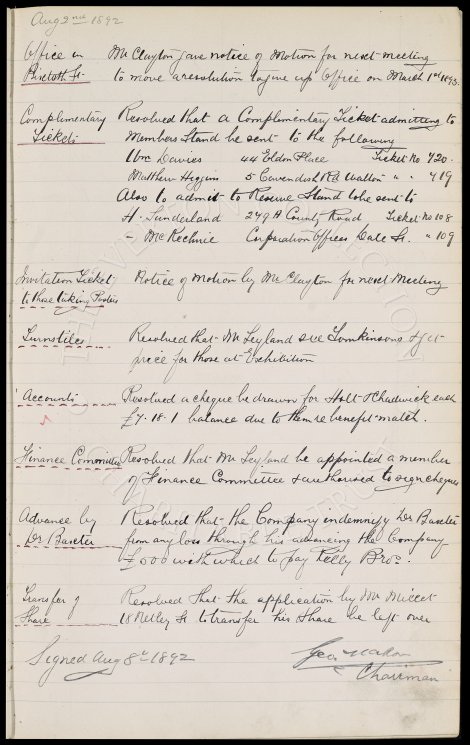 Aug 2nd 1892
Office in Mr Clayton gave notice of Motion for next meeting
Pinetoft St. to move a resolution to give up Office on March 1st 1893.
Complimentary Resolved that a Complimentary Ticket admitting to
Tickets Members Stand be sent to the following
Wm Davies 44 Eldon Place Ticket No 420.
Matthew Higgins 5 Cavendish Rd Walton " " 419
Also to admit to Reserve Stand to be sent to
H. Sunderland 249A County Road Ticket No 108
- McKechnie Corporation Offices Dale St. " 109
Invitation Ticket Notice of Motion by Mr Clayton for next Meeting
to those taking Posters
Turnstiles Resolved that Mr Leyland see Tomkinsons & get
price for those at Exhibition
Accounts Resolved a cheque be drawn for Holt & Chadwick each
£7.18.1 balance due to them re benefit match.
Finance Committee Resolved that Mr Leyland be appointed a member
of Finance Committee & authorised to sign cheques
Advance by Resolved that the Company indemnify Dr Baxter
Dr Baxter from any loss through his advancing the Company
£1,000 with which to pay Kelly Bros.
Transfer of Resolved that the application by Mr Millet
Share 18 Netley St to transfer his Share be left over
Signed Aug 8th 1892 Geo. Mahon
Chairman